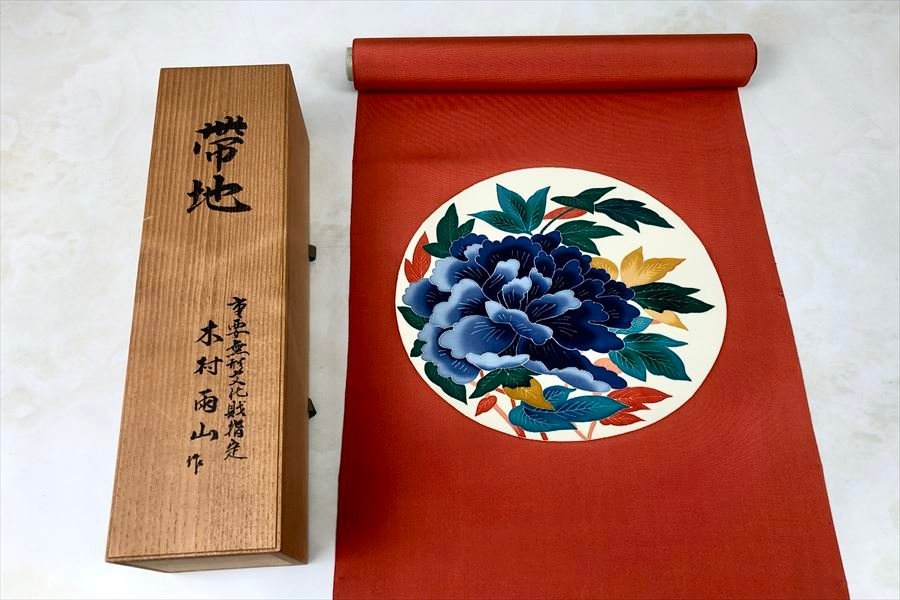 帯地
重要無形文化財指定
木村雨山作